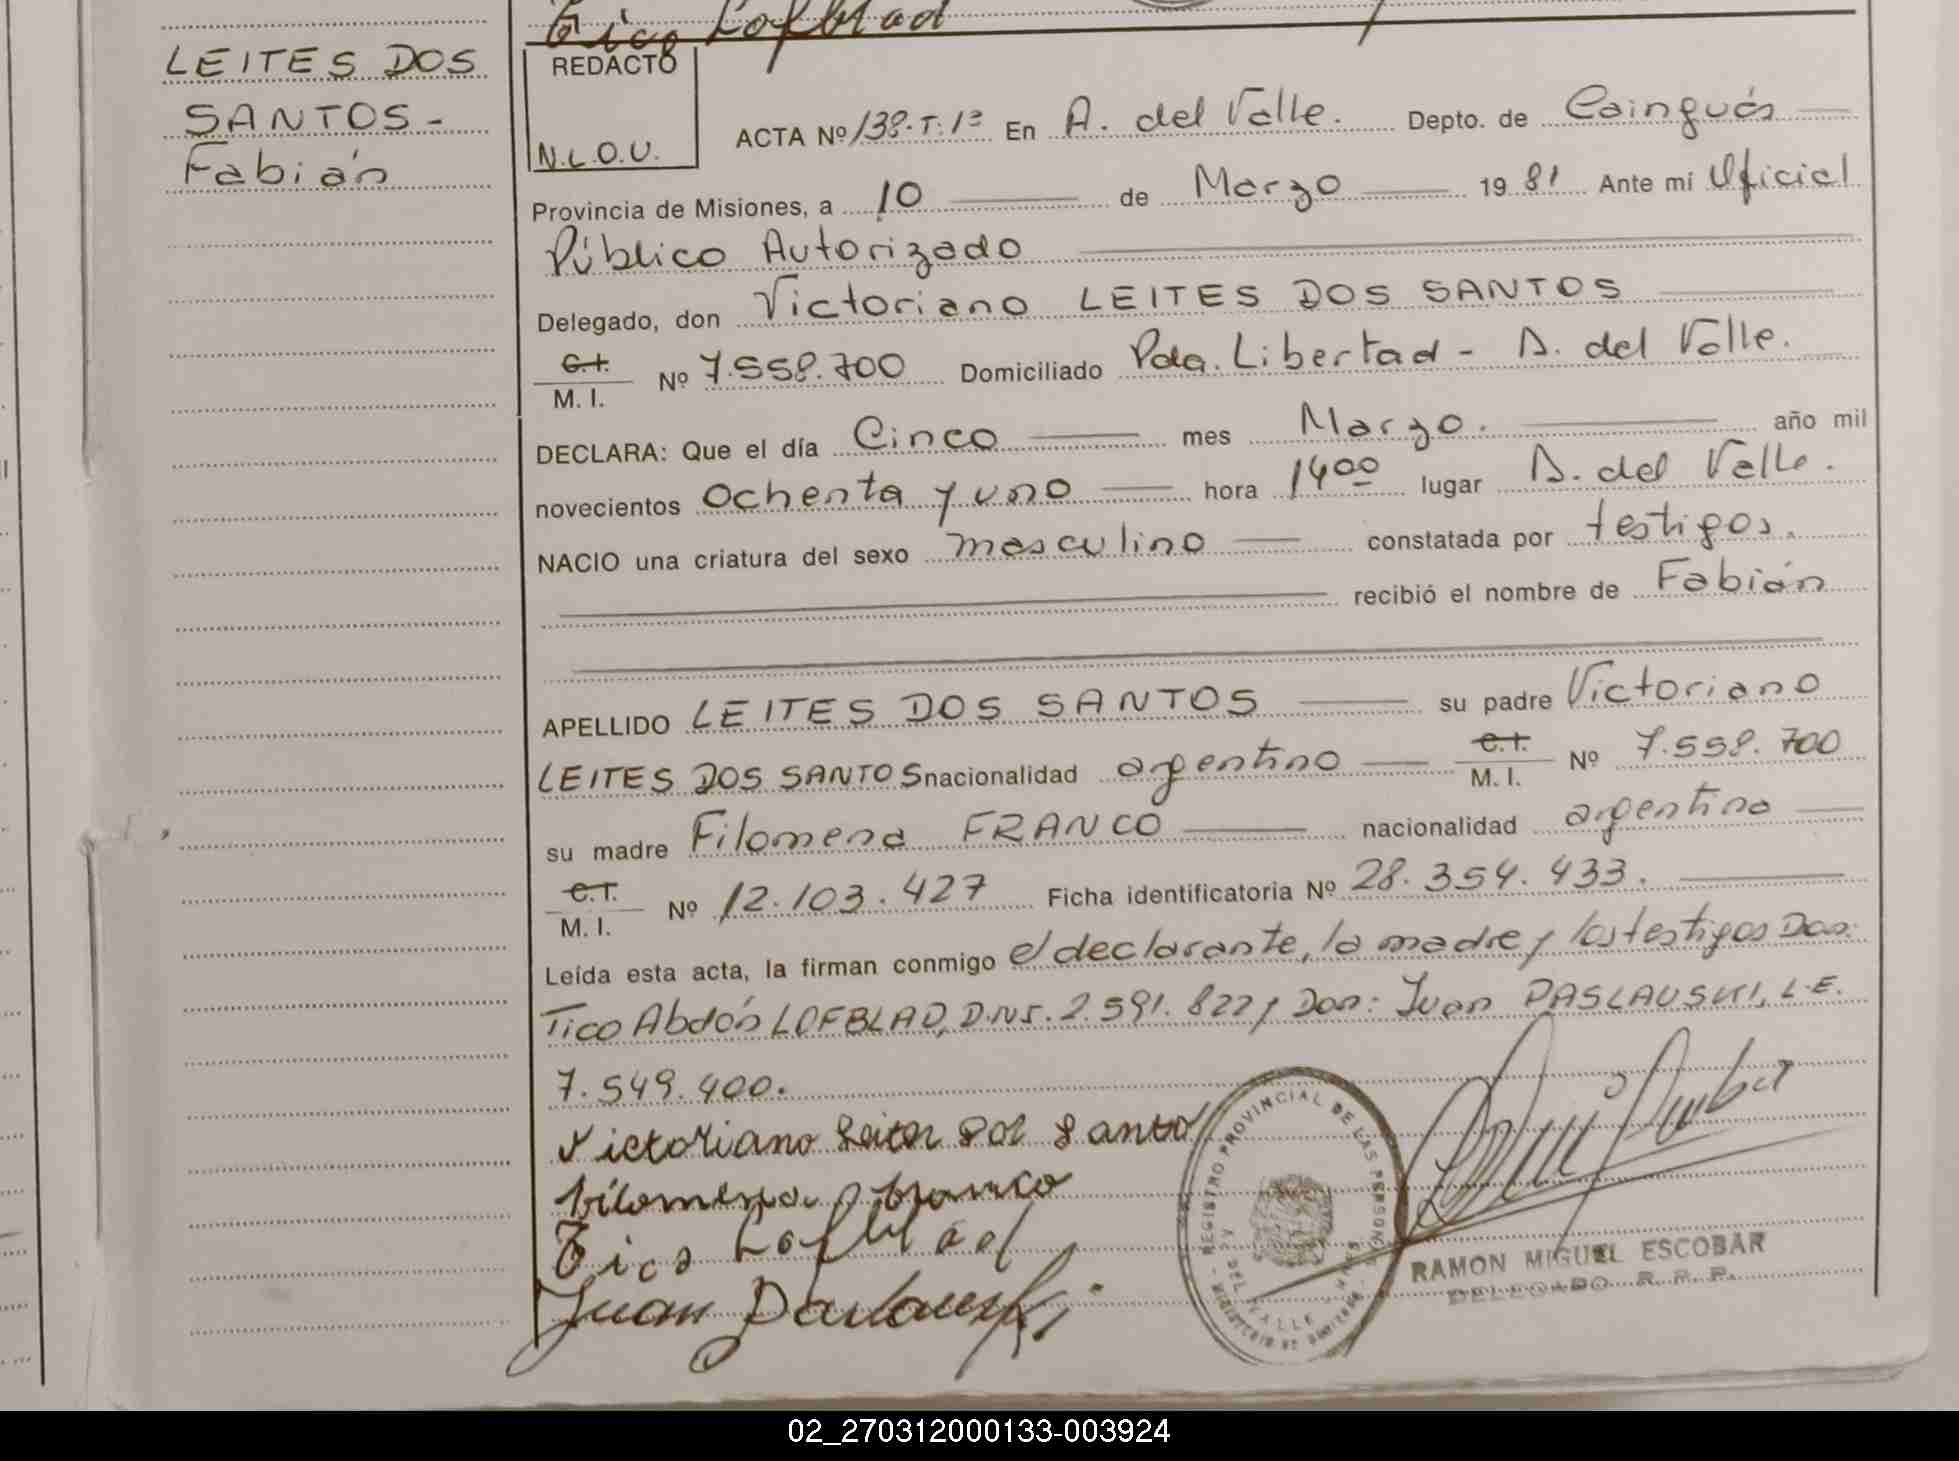 Tico Lofblad
LEITES DOS
SANTOS-
Fabián
REDACTO
N.L.O.U.
ACTA Nº 138-T:1º En A. del Valle. Depto. de Cainguás
Provincia de Misiones, a 10 de Marzo 19 81 Ante mi Oficial
Público Autorizado
Delegado, don Victoriano LEITES DOS SANTOS
C.I.
M. I. Nº 7.558.700 Domiciliado Pda. Libertad - A. del Valle.
DECLARA: Que el día Cinco mes Marzo. año mil
novecientos Ochenta y uno hora 14oo lugar A. del Valle.
NACIO una criatura del sexo masculino constatada por testigos.
recibió el nombre de Fabián
APELLIDO LEITES DOS SANTOS su padre Victoriano
LEITES DOS SANTOS nacionalidad argentino C.I. M. I. Nº 7.558.700
su madre Filomena FRANCO nacionalidad argentina
C.I.
M. I. Nº 12.103.427 Ficha identificatoria Nº 28.354.433.
Leída esta acta, la firman conmigo el declarante, la madre y los testigos Don:
Tico Abdón LOFBLAD, D.N.I. 2.591.822 y Don: Juan PASLAUSKI, L.E.
7.549.400.
Victoriano Leites Dos Santo
Filomena Franco
Tico Lofblad
Juan Paslauski
REGISTRO PROVINCIAL DE LAS PERSONAS
DEL VALLE
RAMON MIGUEL ESCOBAR
DELEGADO R. P. P.
02_270312000133-003924